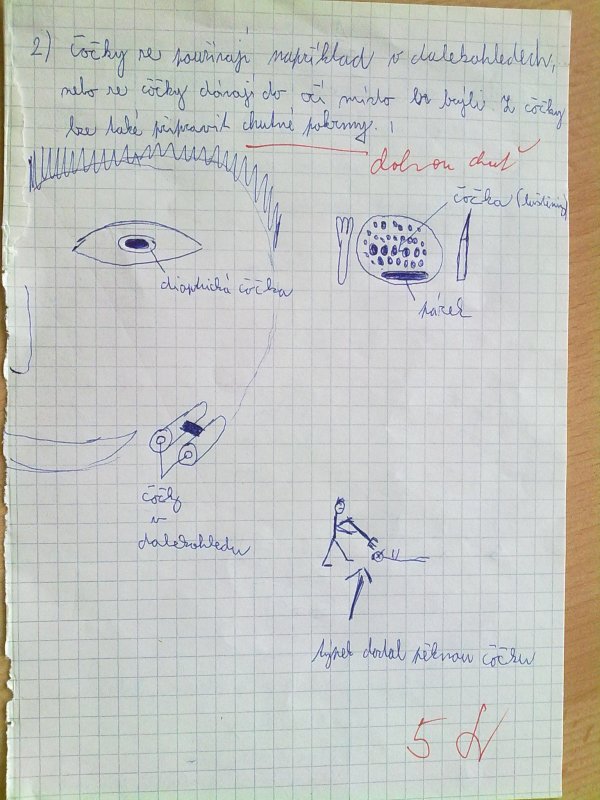 2) Čočky se používají například v dalekohledech,
nebo se čočky dávají do očí místo brýlí. Z čočky
lze také připravit chutné pokrmy.
dobrou chuť
čočka (luštěnina)
dioptrická čočka
párek
čočky
v
dalekohledu
týpek dostal pěknou čočku
5